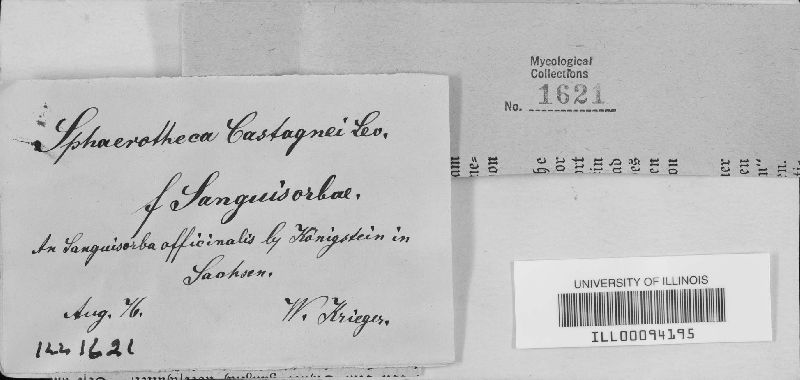 Mycological
Collections
No. 1621
Sphaerotheca Castagnei Lev.
f Sanguisorbae.
An Sanguisorba officinalis by Königstein in
Sachsen.
Aug. 76. W. Krieger.
Ill 1621
UNIVERSITY OF ILLINOIS
ILL00094195